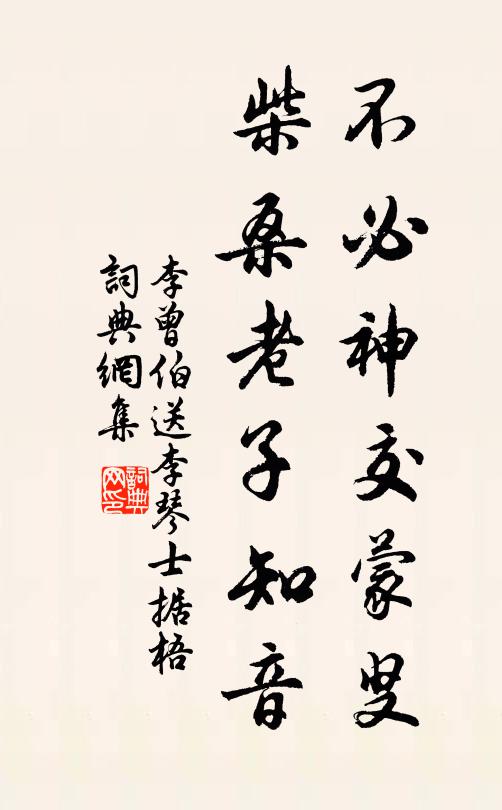 不必神交蒙叟
柴桑老子知音
李曾伯送李琴士據梧
詞典網集
詞典网印